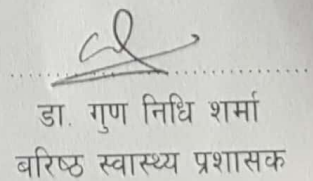 डा. गुण निधि शर्मा
बरिष्ठ स्वास्थ्य प्रशासक